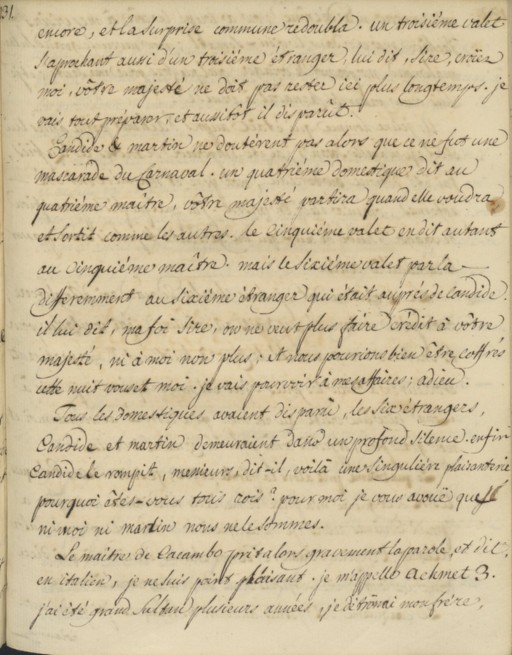 131.
encore, et la surprise commune redoubla. un troisiéme valet
s'aprochant aussi d'un troisiéme étranger, lui dit, sire, croiez
moi, vôtre majesté ne doit pas rester ici plus longtemps. je
vais tout préparer, et aussitôt il disparût.
Candide & martin ne doutérent pas alors que ce ne fut une
mascarade du Carnaval. un quatriéme domestique dit au
quatriéme maitre, vôtre majesté partira quand elle voudra
et sortit comme les autres. le Cinquiéme valet en dit autant
au Cinquiéme maître. mais le sixiéme valet parla
differemment au sixiéme étranger qui était auprés de Candide.
il lui dit, ma foi sire, on ne veut plus faire crédit à vôtre
majesté, ni à moi non plus; et nous pourions bien être coffrés
cette nuit vous et moi. je vais pourvoir à mes affaires; adieu.
Tous les domestiques avaient disparu, les six étrangers,
Candide et martin demeuraient dans un profond silence. enfin
Candide le rompit, messieurs, dit-il, voilà une singuliére plaisanterie
pourquoi êtes-vous tous rois? pour moi je vous avouë que
ni moi ni martin nous ne le sommes.
Le maître de Cacambo prit alors gravement la parole, et dit
en italien, je ne suis point plaisant. je m'appelle achmet 3.
j'ai été grand Sultan plusieurs années, je détrônai mon frére,